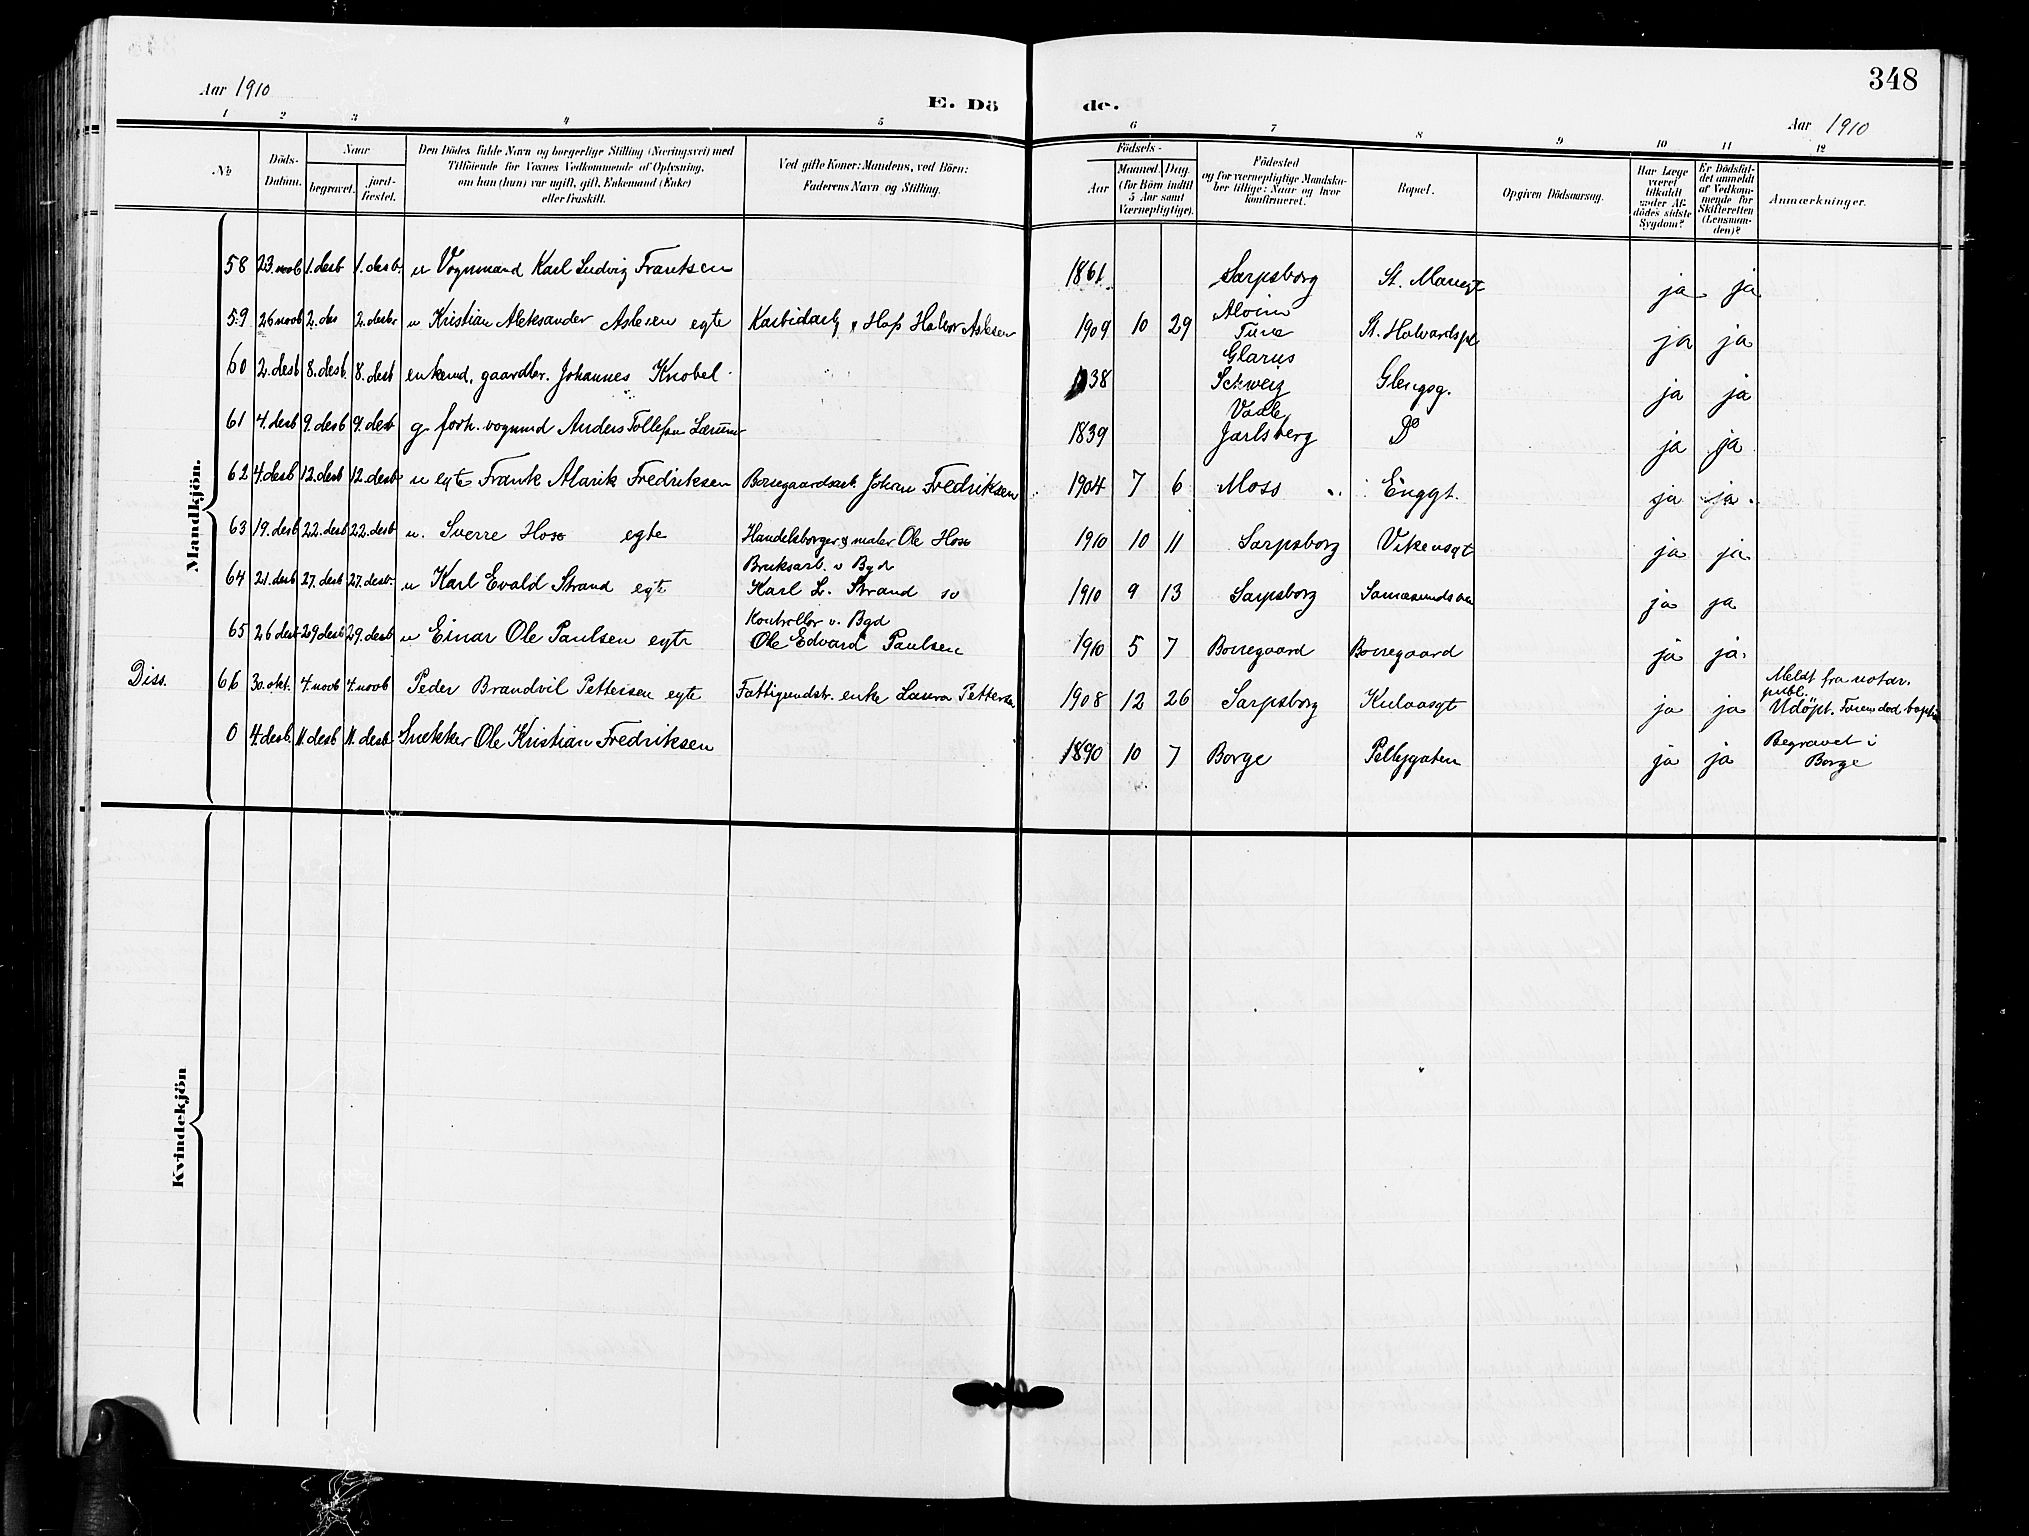 348
Aar 1910
E. Dö
de.
Aar 1910
1 2 3 4 5 6 7 8 9 10 11 12
No
Döds-
Datum.
Naar
begravet.
jord-
fæstet.
Den Dödes fulde Navn og borgerlige Stilling (Næringsvei) med
Tilföiende for Voxnes Vedkommende af Oplysning,
om han (hun) var ugift, gift, Enkemand (Enke)
eller fraskilt.
Ved gifte Koner: Mandens, ved Börn:
Faderens Navn og Stilling.
Födsels-
Aar
Maaned. Dag.
(for Börn indtil
5 Aar samt
Værnepligtige).
Födested
og for værnepligtige Mandska-
ber tillige: Naar og hvor
konfirmeret.
Bopæl.
Opgiven Dödsaarsag.
Har Læge
været
tilkaldt
under Af-
dödes sidste
Sygdom?
Er Dödsfal-
det anmeldt
af Vedkom-
mende for
Skifteretten
(Lensman-
den)?
Anmærkninger.
Mandkjön.
58 23. novb 1. desb 1. desb u Vognmand Karl Ludvig Frantsen 1861 Sarpsborg St. Mariegt ja ja
59 26 novb 2. des 2. desbr u Kristian Aleksander Aslesen egte Halvor Aslesen 1909 10 29 Tune St. Halvardspl ja ja
60 2. desb 8. desb. 8. desb enkemd. gaardbr. Johannes Knobel 38 Glarus
Schweiz Glengsg. ja ja
61 4. desb 9. desb 9. desb g forh. vognmd Anders Tollefsen 1839 Vaale
Jarlsberg Do ja ja
62 4. desb 12. desb 12. desb u egte Frank Alarik Fredriksen Borregaardsarb. Johan Fredriksen 1904 7 6 Moss Enggt. ja ja
63 19. desb 22. desb 22. desb u. Sverre Hoss egte Handelsborger & maler Ole Hoss 1910 10 11 Sarpsborg Vikensgt ja ja
Bruksarb. v Bgd
64 21. desb 27. desb 27. desb u Karl Evald Strand egte Karl L. Strand 1910 9 13 Sarpsborg ja ja
Kontrollør v. Bgd
65 26 desb 29 desb 29. desb u Einar Ole Paulsen egte Ole Edvard Paulsen 1910 5 7 Borregaard Borregaard ja ja
Diss. 66 30. okt. 4. novb 4. novb Peder Brandvil Pettersen egte Fattigundstr. enke Laura Pettersen 1908 12 26 Sarpsborg Kulaasgt ja ja Meldt fra notar.
publ.
Udöpt.
0 4. desb. 11. desb 11. desb Snekker Ole Kristian Fredriksen 1890 10 7 Borge Pellygaten ja ja Begravet i
Borge
Kvindekjön